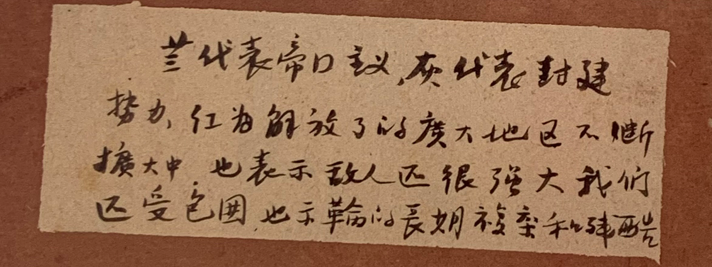 兰代表帝口主义,灰代表封建
势力,红为解放了的廣大地区不断
擴大中 也表示敌人还很强大我们
还受包围,也示着的長期複杂和残酷